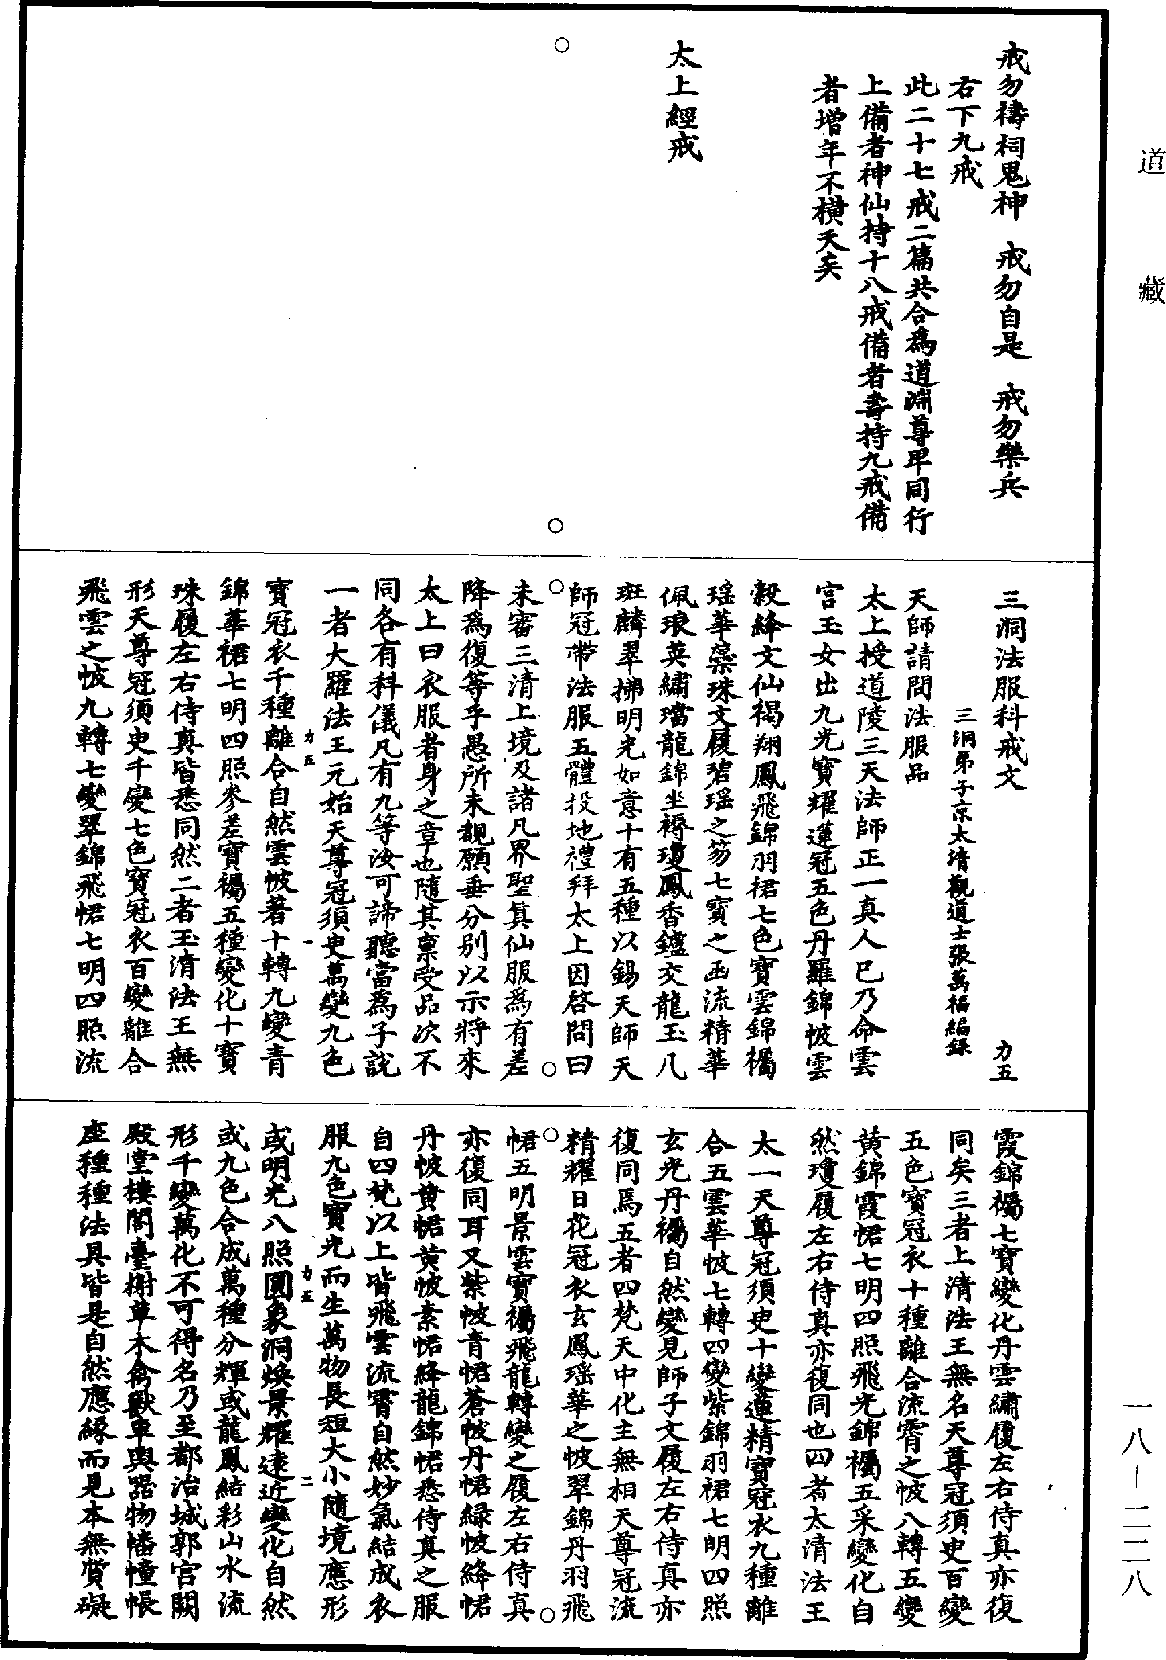 道藏
戒勿禱祠鬼神　戒勿自是　戒勿樂兵
右下九戒
此二十七戒二篇共合爲道淵尊卑同行
上備者神仙持十八戒備者壽持九戒備
者增年不橫夭矣
太上經戒
三洞法服科戒文　力五
三洞弟子京太清觀道士張萬福編錄
天師請問法服品
太上授道陵三天法師正一真人已乃命雲
宮玉女出九光寶耀蓮冠五色丹羅錦帔雲
縠絳文仙褐翔鳳飛錦羽裙七色寶雲錦襡
瑤華藻珠文履碧瑤之笏七寶之函流精華
佩琅英繡璫龍錦坐褥瓊鳳香鑪交龍玉八
斑麟翠拂明光如意十有五種以錫天師天
師冠帶法服五體投地禮拜太上因啓問曰
未審三清上境及諸凡界聖真仙服爲有差
降爲復等乎愚所未覩願垂分別以示將來
太上曰衣服者身之章也隨其稟受品次不
同各有科儀凡有九等汝可諦聽當爲子說
一者大羅法王元始天尊冠須史萬變九色
寶冠衣千種離合自然雲帔著十轉九變青
錦華裙七明四照參差寶襡五種變化十寶
珠履左右侍真皆悉同然二者玉清法王無
形天尊冠須史千變七色寶冠衣百變離合
飛雲之帔九轉七變翠錦飛裙七明四照流
力五　一
霞錦襡七寶變化丹雲繡履左右侍真亦復
同矣三者上清法王無名天尊冠須史百變
五色寶冠衣十種離合流霄之帔八轉五變
黃錦霞裙七明四照飛光錦襡五采變化自
然瓊履左右侍真亦復同也四者太清法王
太一天尊冠須史十變蓮精寶冠衣九種離
合五雲華帔七轉四變紫錦羽裙七明四照
玄光丹襡自然變見師子文履左右侍真亦
復同焉五者四梵天中化主無相天尊冠流
精耀日花冠衣玄鳳瑤華之帔翠錦丹羽飛
裙五明景雲寶襡飛龍轉變之履左右侍真
亦復同耳又紫帔青裙蒼帔丹裙綠帔絳裙
丹帔黃裙黃帔素裙絳龍錦裙悉侍真之服
自四梵以上皆飛雲流霄自然妙氣結成衣
服九色寶光而生萬物長短大小隨境應形
或明光八照圓象洞煥景耀遠近變化自然
或九色合成萬種分輝或龍鳳結彩山水流
形千變萬化不可得名乃至都治城郭宮闕
殿堂樓閣臺榭草木禽獸車輿器物幡幢帳
座種種法具皆是自然應緣而見本無質礙
力五　二
一八—二二八